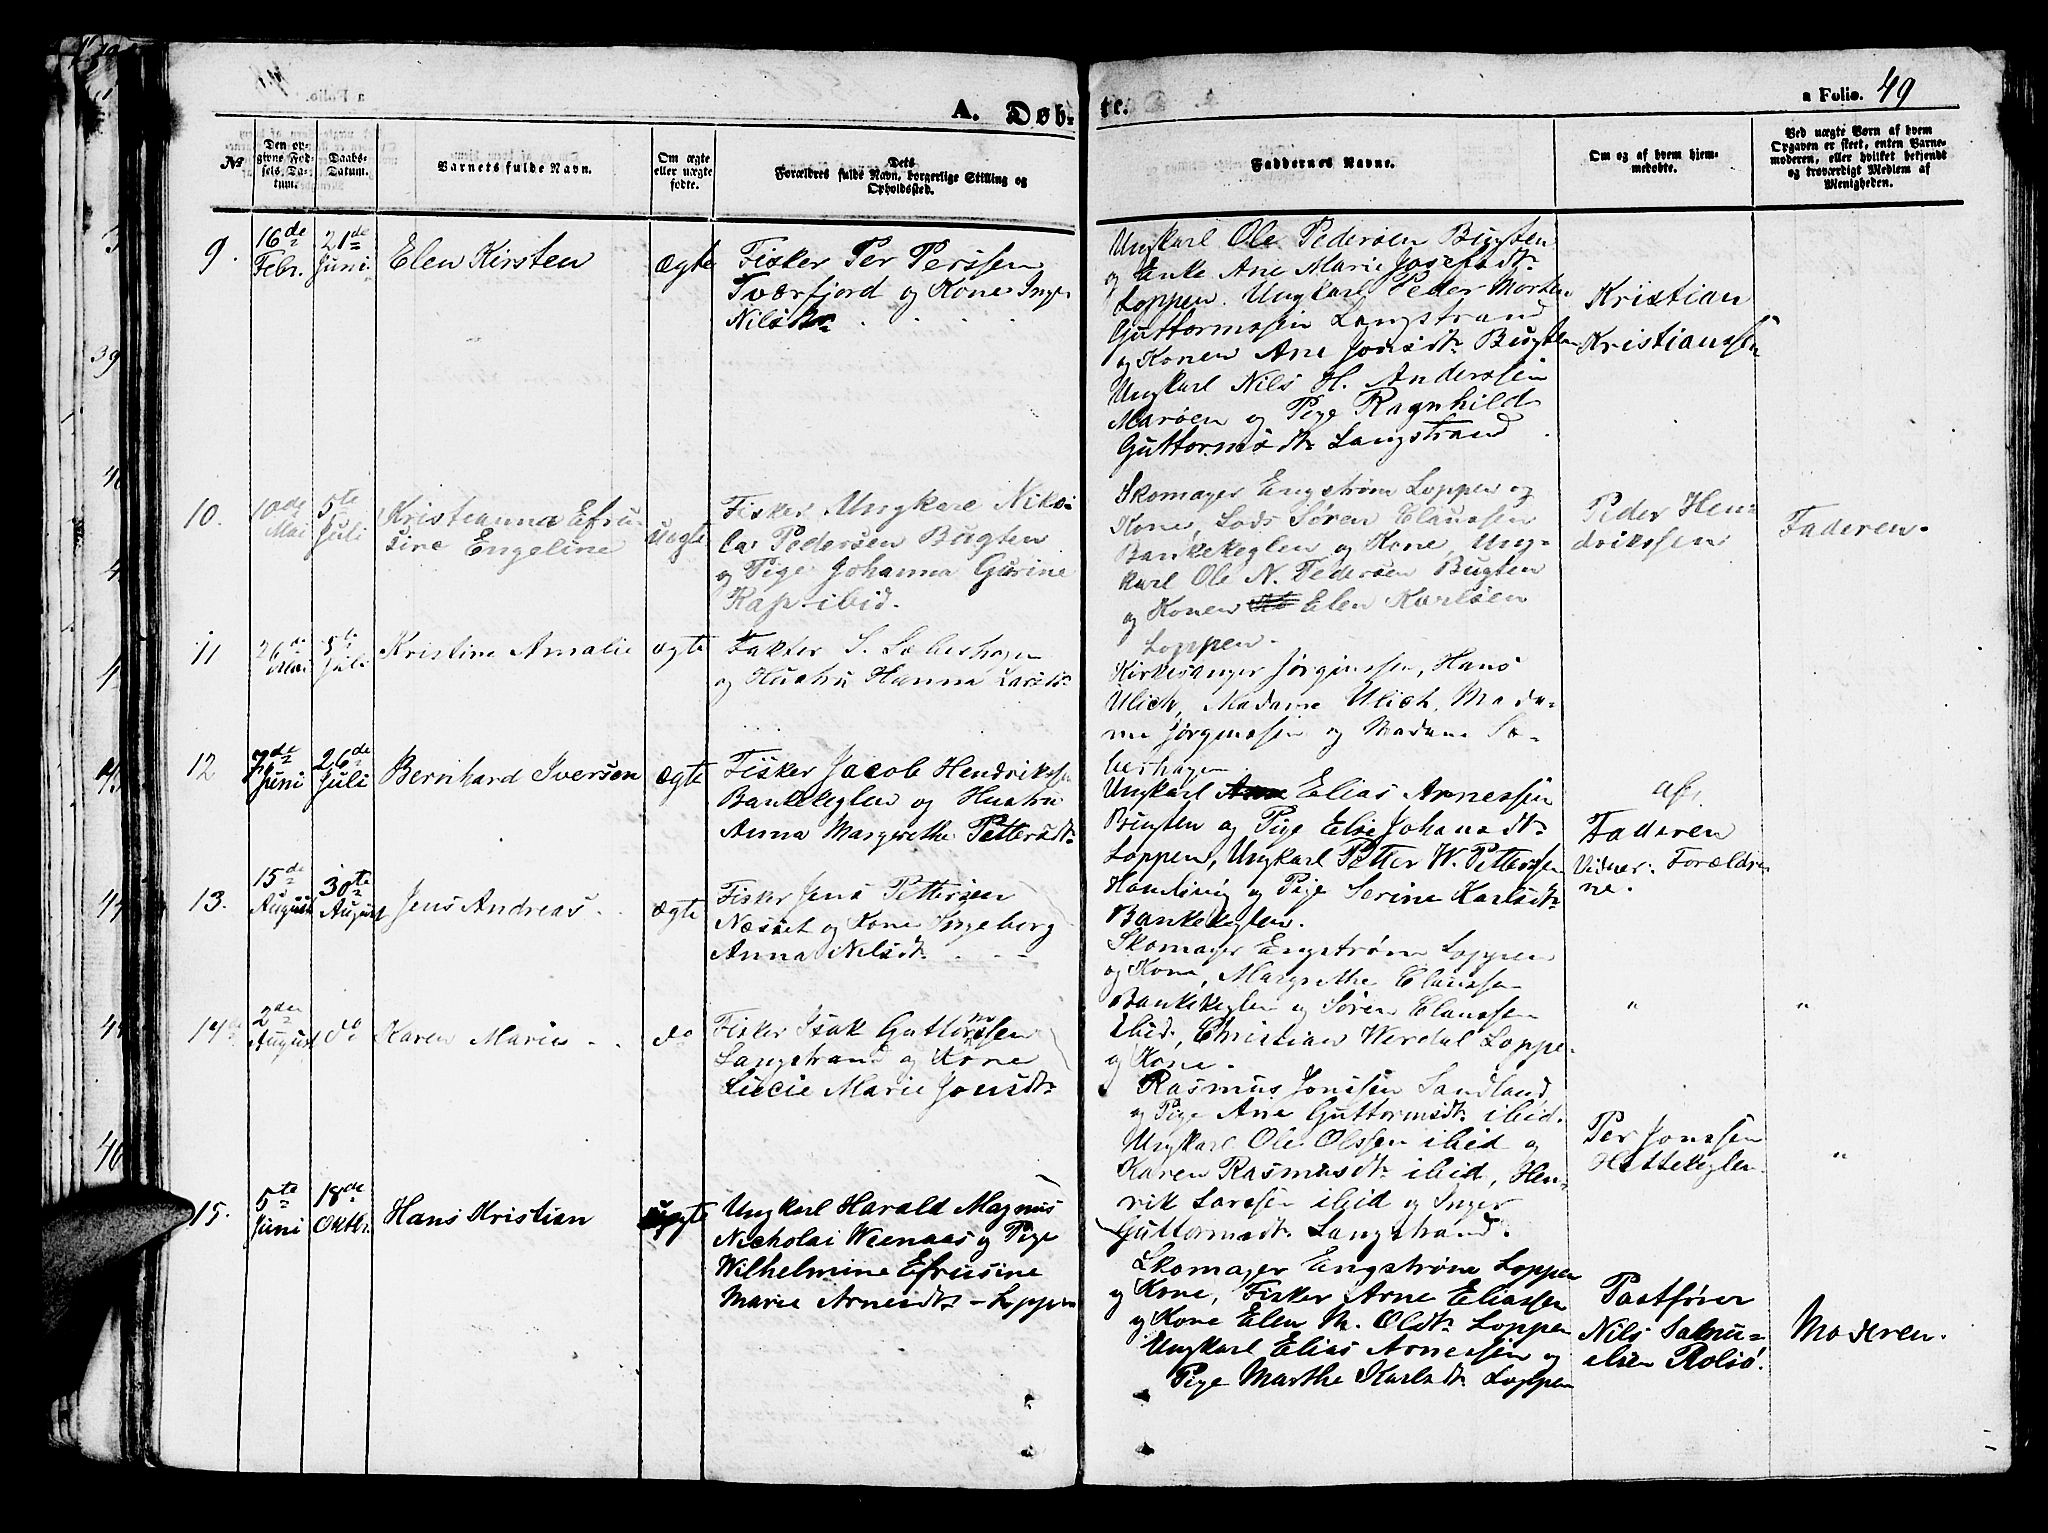 A. Døb-
te.
a Folio. 49
No
Den op-
givne Fød-
sels, Da-
tum.
Daabs-
Datum.
Barnets fulde Navn.
Om ægte
eller uægte
fødte.
Dets
Forældres fulde Navn, borgerlige Stilling og
Opholdssted.
Faddernes Navne.
Om og af hvem hjem-
medøbte.
Ved uægte Børn af hvem
Opgaven er skeet, enten Barne-
moderen, eller hvilket bekjendt
og troværdigt Medlem af
Menigheden.
9.
16de
Febr.
21de
Juni
Elen Kirsten
ægte
Fisker Per Perssen
Tværfjord og Kone Inge
Nilsdtr
Ungkarl Ole Pedersen Bugten
og Enke Ane Marie Josefsdtr
Loppen. Ungkarl Peder Morten
Guttormssen Langstrand
og Konen Ane Jonsdtr Bugten
Ungkarl Nils H. Anderssen
Marøen og Pige Ragnhild
Guttormsdtr Langstrand.
Kristian
Kristianssen
10.
10de
Mai
5te
Juli
Kristianna Efru-
sine Engeline
uægte
Fisker Ungkarl Niko-
lai Pedersen Bugten
og Pige Johanna Gurine
Kap ibid.
Skomager Engstrøm Loppen og
Kone, Lods Søren Clausen
Bankekeglen og Kone, Ung-
karl Ole N. Pedersen Bugten
og Konen Elen Karlsen
Loppen.
Peder Hen-
drikssen
Faderen.
11
26de
Mai
5te
Juli
Kristine Amalie
ægte
Faktor S. Sæbeshagen
og Hustru Hanna Larsdtr
Kirkesanger Jørginssen, Hans
Ulich, Madame Ulich, Mada-
me Jørginssen og Madame Sæ-
beshagen
12
7de
Juni
26de
Juli
Bernhard Iversen
ægte
Fisker Jacob Hendrikssen
Bankekeglen og Hustru
Anna Margrethe Pettersdtr
Ungkarl Elias Arnessen
Bugten og Pige Else Johansdtr
Loppen, Ungkarl Petter W. Petterssen
og Pige Serine Karlsdtr
Bankekeglen.
af
Faderen
Vidner: Forældre-
ne.
13.
15de
August
30te
August
Jens Andreas
ægte
Fisker Jens Pettersen
Næsset og Kone Ingeborg
Anna Nilsdtr
Skomager Engstrøm Loppen
og Kone, Margrethe Claussen
Bankekeglen og Søren Claussen
ibid, Christian Werdal Loppe
og Kone.
"
"
14
2den
August
do
Karen Marie
do
Fisker Isak Guttormssen
Langstrand og Kone
Lucie Marie Jonsdtr
Rasmus Jonssen Sandland,
og Pige Ane Guttormsdtr ibid.
Ungkarl Ole Olssen ibid og
Karen Rasmusdtr ibid, Hen-
rik Larssen ibid og Inger
Guttormsdtr Langstrand.
Per Jonssen
Hettekeglen.
"
15.
5te
Juni
18de
Oktbr.
Hans Kristian
uægte
Ungkarl Harald Magnus
Nicholai Wenaas og Pige
Wilhelmine Efrusine
Marie Arnesdtr - Loppen
Skomager Engstrøm Loppen
og Kone, Fisker Arne Eliassen
og Kone Elen M. Olsdtr Loppen
Ungkarl Elias Arnessen og
Pige Marthe Karlsdtr Loppen
Postfører
Nils Samu-
elsen Rolsø.
Moderen.